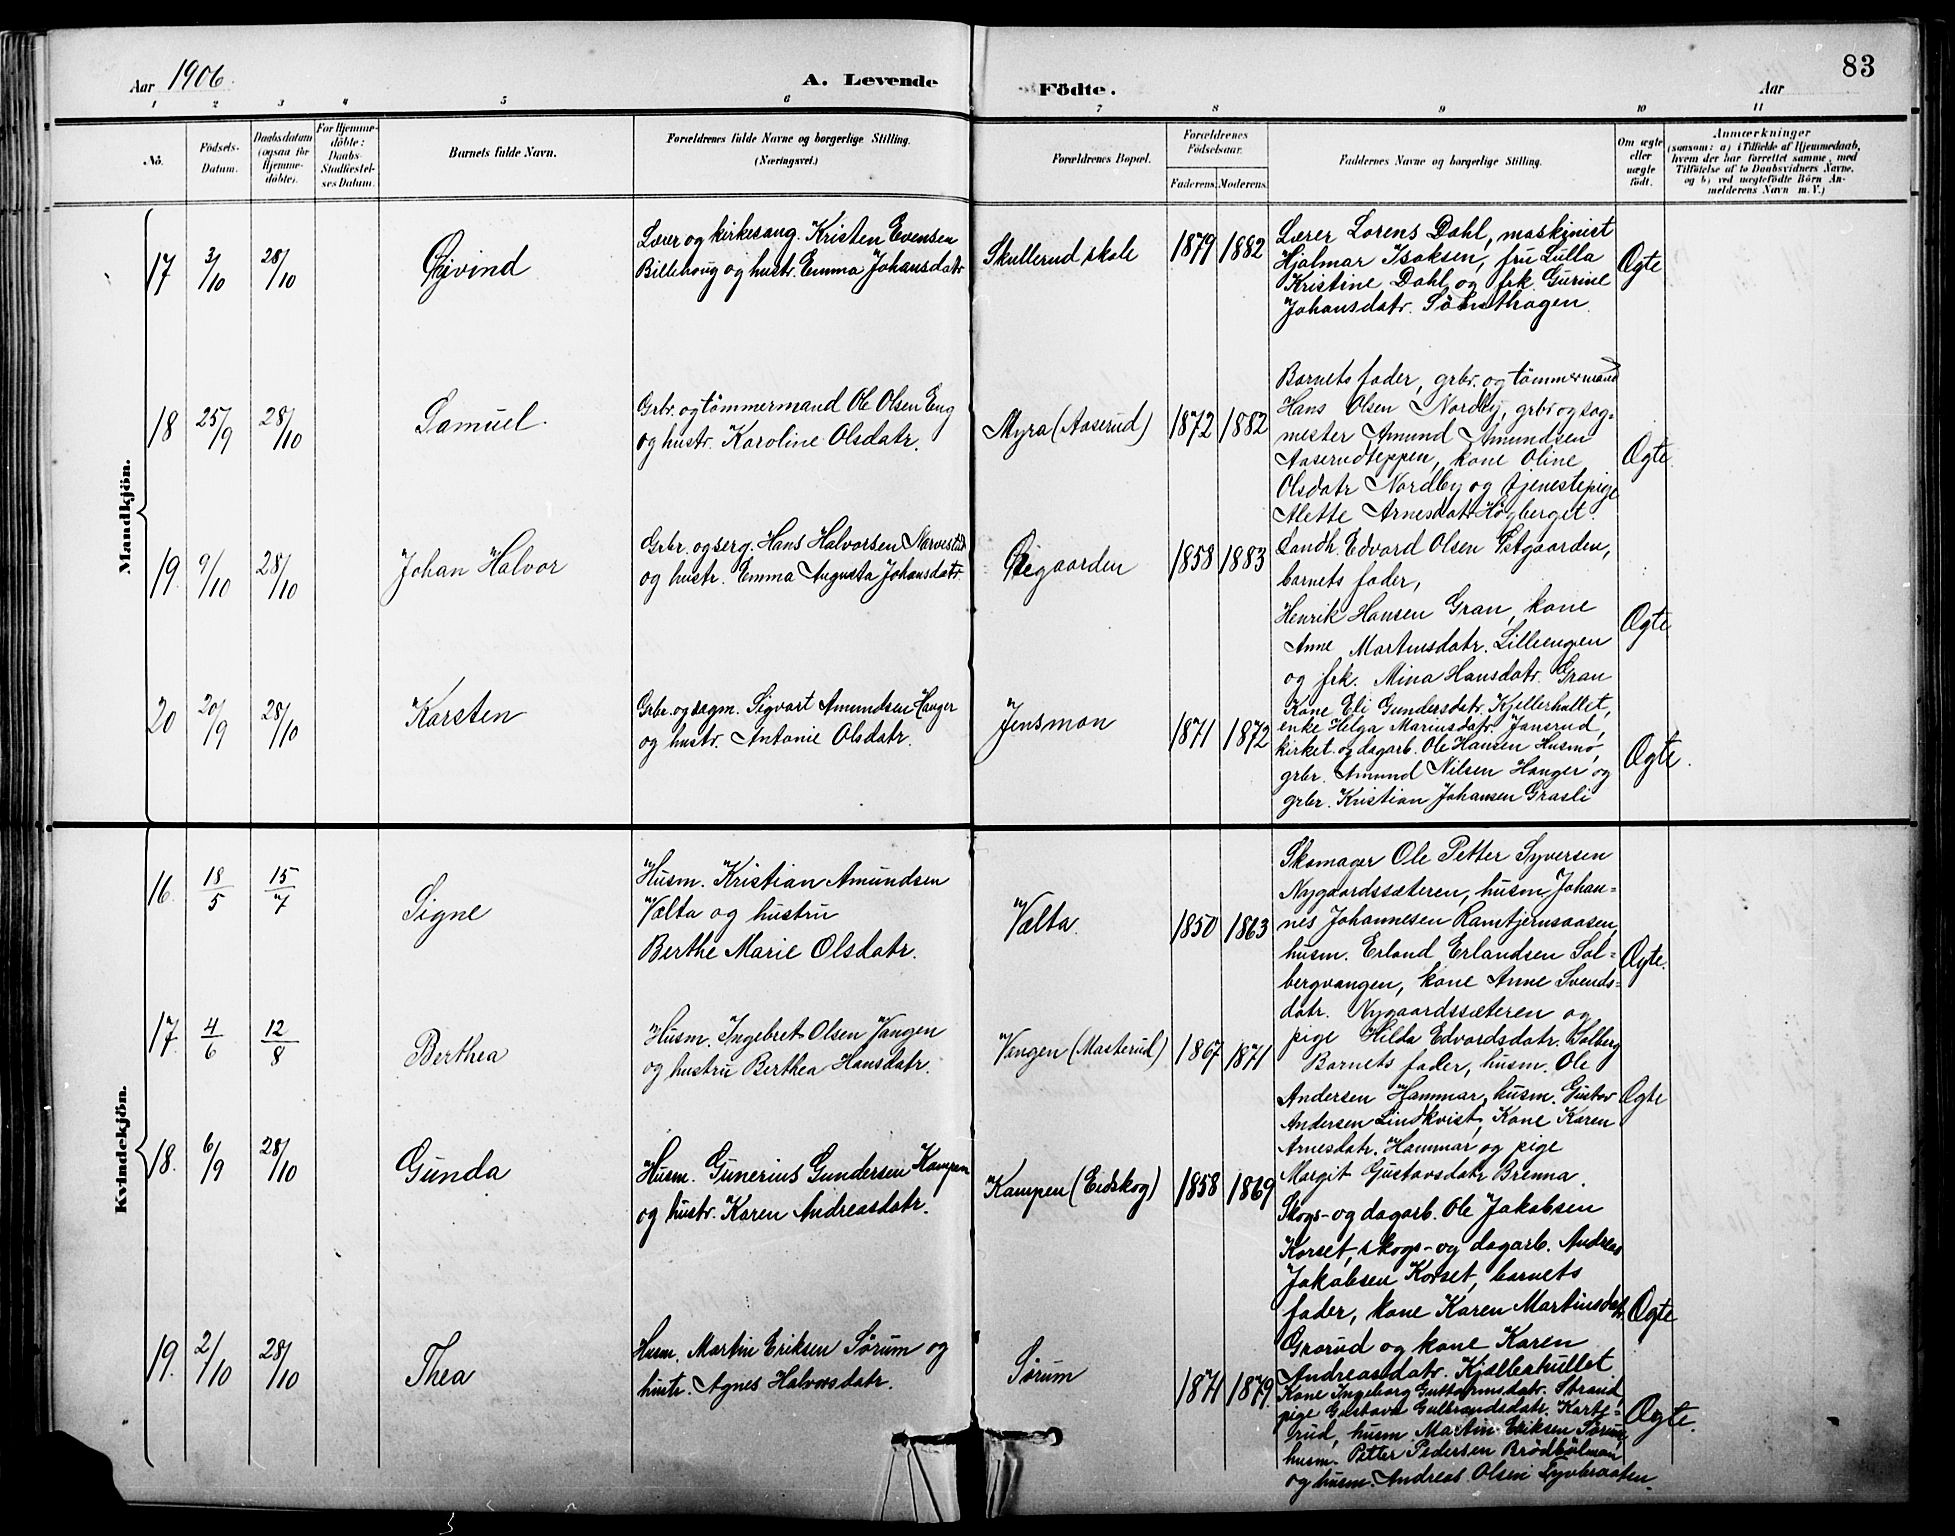 83
Aar 1906.
A. Levende Födte.
Aar
1 2 3 4 5 6 7 8 9 10 11
No.
Födsels-Datum.
Daabsdatum (ogsaa for Hjemme-döbte).
For Hjemme-döbte: Daabs-Stadfæstel-ses Datum.
Barnets fulde Navn.
Forældrenes fulde Navne og borgerlige Stilling.
(Næringsvei.)
Forældrenes Bopæl.
Forældrenes Födselsaar.
Faderens. Moderens.
Faddernes Navne og borgerlige Stilling.
Om ægte eller uægte födt.
Anmærkninger
(saasom: a) i Tilfælde af Hjemmedaab,
hvem der har forrettet samme, med
Tilföielse af to Daabsvidners Navne,
og b) ved uægtefödte Börn An-
melderens Navn m. V.)
Mandkjön.
17 3/10 28/10 Øivind
Lærer og kirkesang. Kristen Evensen
Billehoug og hustr. Emma Johansdatr
Skullerud skole 1879 1882
Lærer Lorens Dahl, maskinist
Hjalmar Isaksen, fru Lulla
Kristine Dahl og frk. Gurine
Johansdatr.
Ægte
18 25/9 28/10 Samuel
Grbr. og tömmermand Ole Olsen Eng
og hustr. Karoline Olsdatr.
Myra (Aaserud) 1872 1882
Barnets fader, grbr. og tömmermand
Hans Olsen Nordby, grbr og sag-
mester Amund Amundsen
Aaserudteppen, kone Oline
Olsdatr Nordby og tjenestepige
Alette Arnesdatr Högberget.
Ægte.
19. 9/10 28/10 Johan Halvor
Grbr. og serg. Hans Halvorsen
og hustr. Emma Augusta Johansdatr.
Øiegaarden 1858 1883
Landh. Edvard Olsen Østgaarden,
barnets fader,
Henrik Hansen Gran, kone
Anne Martinsdatr. Lilleengen
og frk. Mina Hansdatr. Gran
Ægte
20 20/9 28/10 Karsten
Grbr. og sagm. Sigvart Amundsen Hanger
og hustr. Antonie Olsdatr.
Jensmon 1871 1872
Kone Eli Gundersdatr. Kjellerhullet,
enke Helga Mariusdatr. Jansrud,
kirket. og dagarb. Ole Hansen Husmo,
grbr. Amund Nilsen Hanger og
grbr. Kristian Johansen Grasli
Ægte.
Kvindekjön.
16. 18/5 15/7 Signe
Husm. Kristian Amundsen
Vælta og hustru
Berthe Marie Olsdatr.
Vælta. 1850 1863
Skomager Ole Petter Syversen
Nygaardssæteren, husm Johan-
nes Johannesen Ramtjernsaasen,
husm. Erland Erlandsen Sol-
bergvangen, kone Anne Svends-
datr. Nygaardssæteren og
pige Hilda Edvardsdatr. Solberg
Ægte.
17. 4/6 12/8 Berthea
Husm. Ingebret Olsen Vangen
og hustru Berthea Hansdatr.
Vangen (Masterud) 1867 1871
Barnets fader, husm. Ole
Andersen Hammar, husm. Gustav
Andersen Lindkvist, Kone Karen
Arnesdatr. Hammar og pige
Margit Gustavsdatr Brenna.
Ægte
18. 6/9 28/10 Gunda
Husm. Gunerius Gundersen Kampen
og hustr. Karen Andreasdatr.
Kampen (Eidskog) 1858 1869
Skogs- og dagarb. Ole Jakobsen
Korset, skogs- og dagarb. Andreas
Jakobsen Korset, barnets
fader, kone Karen Martinusdatr
Grorud og kone Karen
Andreasdatr. Kjellerhullet
Ægte
19. 2/10 28/10 Thea
Husm. Martin Eriksen Sørum og
hustr. Agnes Halvorsdatr.
Sørum 1871 1879.
Kone Ingeborg Guttormsdatr. Strand,
pige Gustava Gulbrandsdatr. Karte-
rud, husm. Martin Eriksen Sørum,
husm. Petter Pedersen Brödbölmoen
og husm. Andreas Olsen Tyvbraaten.
Ægte.